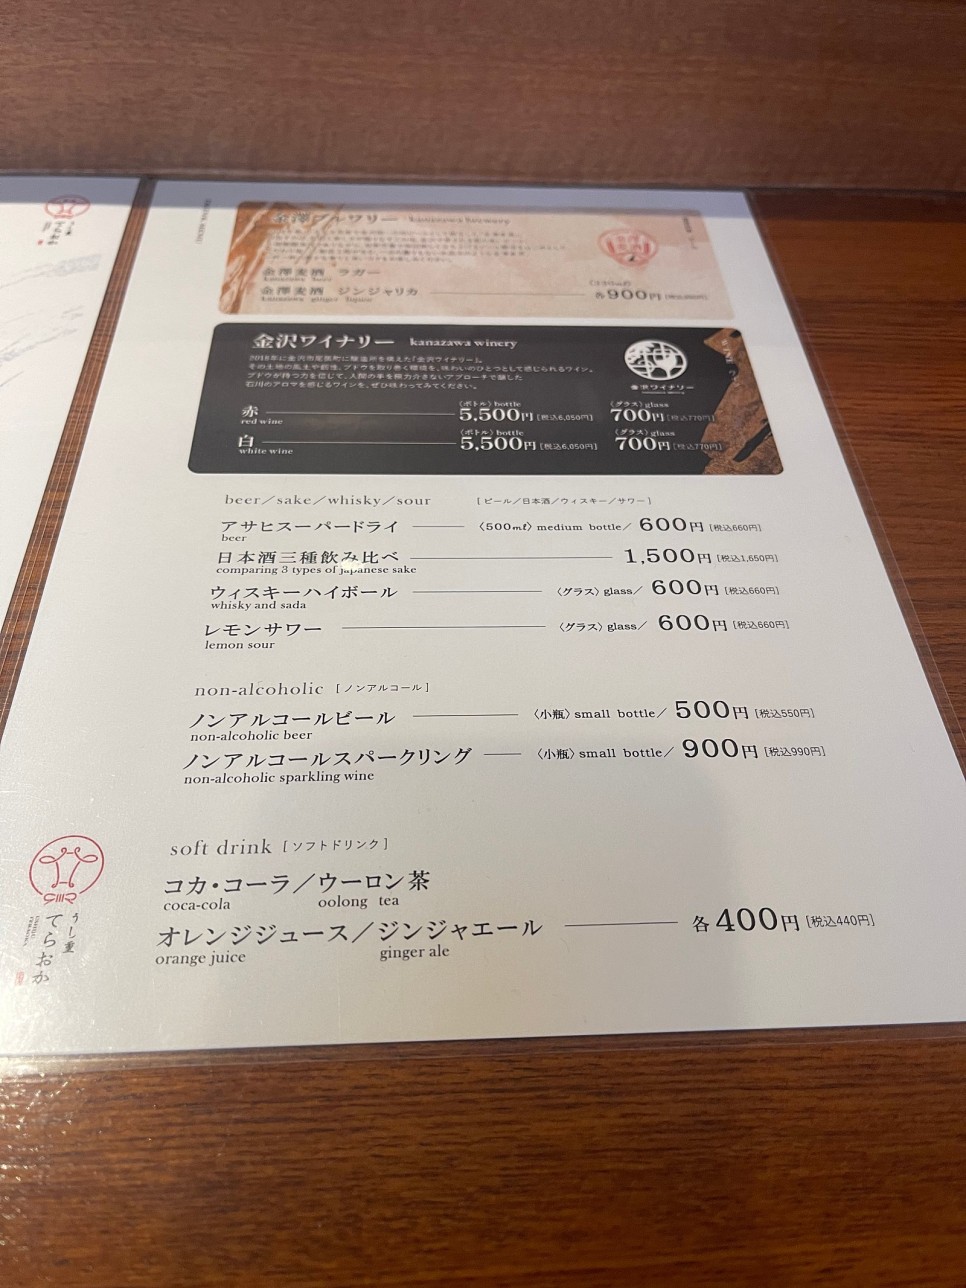 金澤ブルワリー kanazawa brewery
金澤麦酒 ラガー
kanazawa beer
金澤麦酒 ジンジャリカ
kanazawa ginger liquor
各900円
金沢ワイナリー kanazawa winery
2018年に金沢市尾張町に醸造所を構えた「金沢ワイナリー」。
その土地の風土や個性、ブドウを取り巻く環境を、味わいのひとつとして感じられるワイン。
ブドウが持つ力を信じて、人間の手を極力介さないアプローチで醸した
石川のアロマを感じるワインを、ぜひ味わってみてください。
金沢ワイナリー
赤 〈ボトル〉bottle 5,500円 [税込6,050円] 〈グラス〉glass 700円 [税込770円]
red wine
白 〈ボトル〉bottle 5,500円 [税込6,050円] 〈グラス〉glass 700円 [税込770円]
white wine
beer/sake/whisky/sour [ビール/日本酒/ウィスキー/サワー]
アサヒスーパードライ 〈500㎖〉medium bottle/ 600円 [税込660円]
beer
日本酒三種飲み比べ 1,500円 [税込1,650円]
comparing 3 types of japanese sake
ウィスキーハイボール 〈グラス〉glass/ 600円 [税込660円]
whisky and sada
レモンサワー 〈グラス〉glass/ 600円 [税込660円]
lemon sour
non-alcoholic [ノンアルコール]
ノンアルコールビール 〈小瓶〉small bottle/ 500円 [税込550円]
non-alcoholic beer
ノンアルコールスパークリング 〈小瓶〉small bottle/ 900円 [税込990円]
non-alcoholic sparkling wine
soft drink [ソフトドリンク]
コカ・コーラ/ウーロン茶
coca-cola oolong tea
オレンジジュース/ジンジャエール 各400円 [税込440円]
orange juice ginger ale
うし重
てらおか